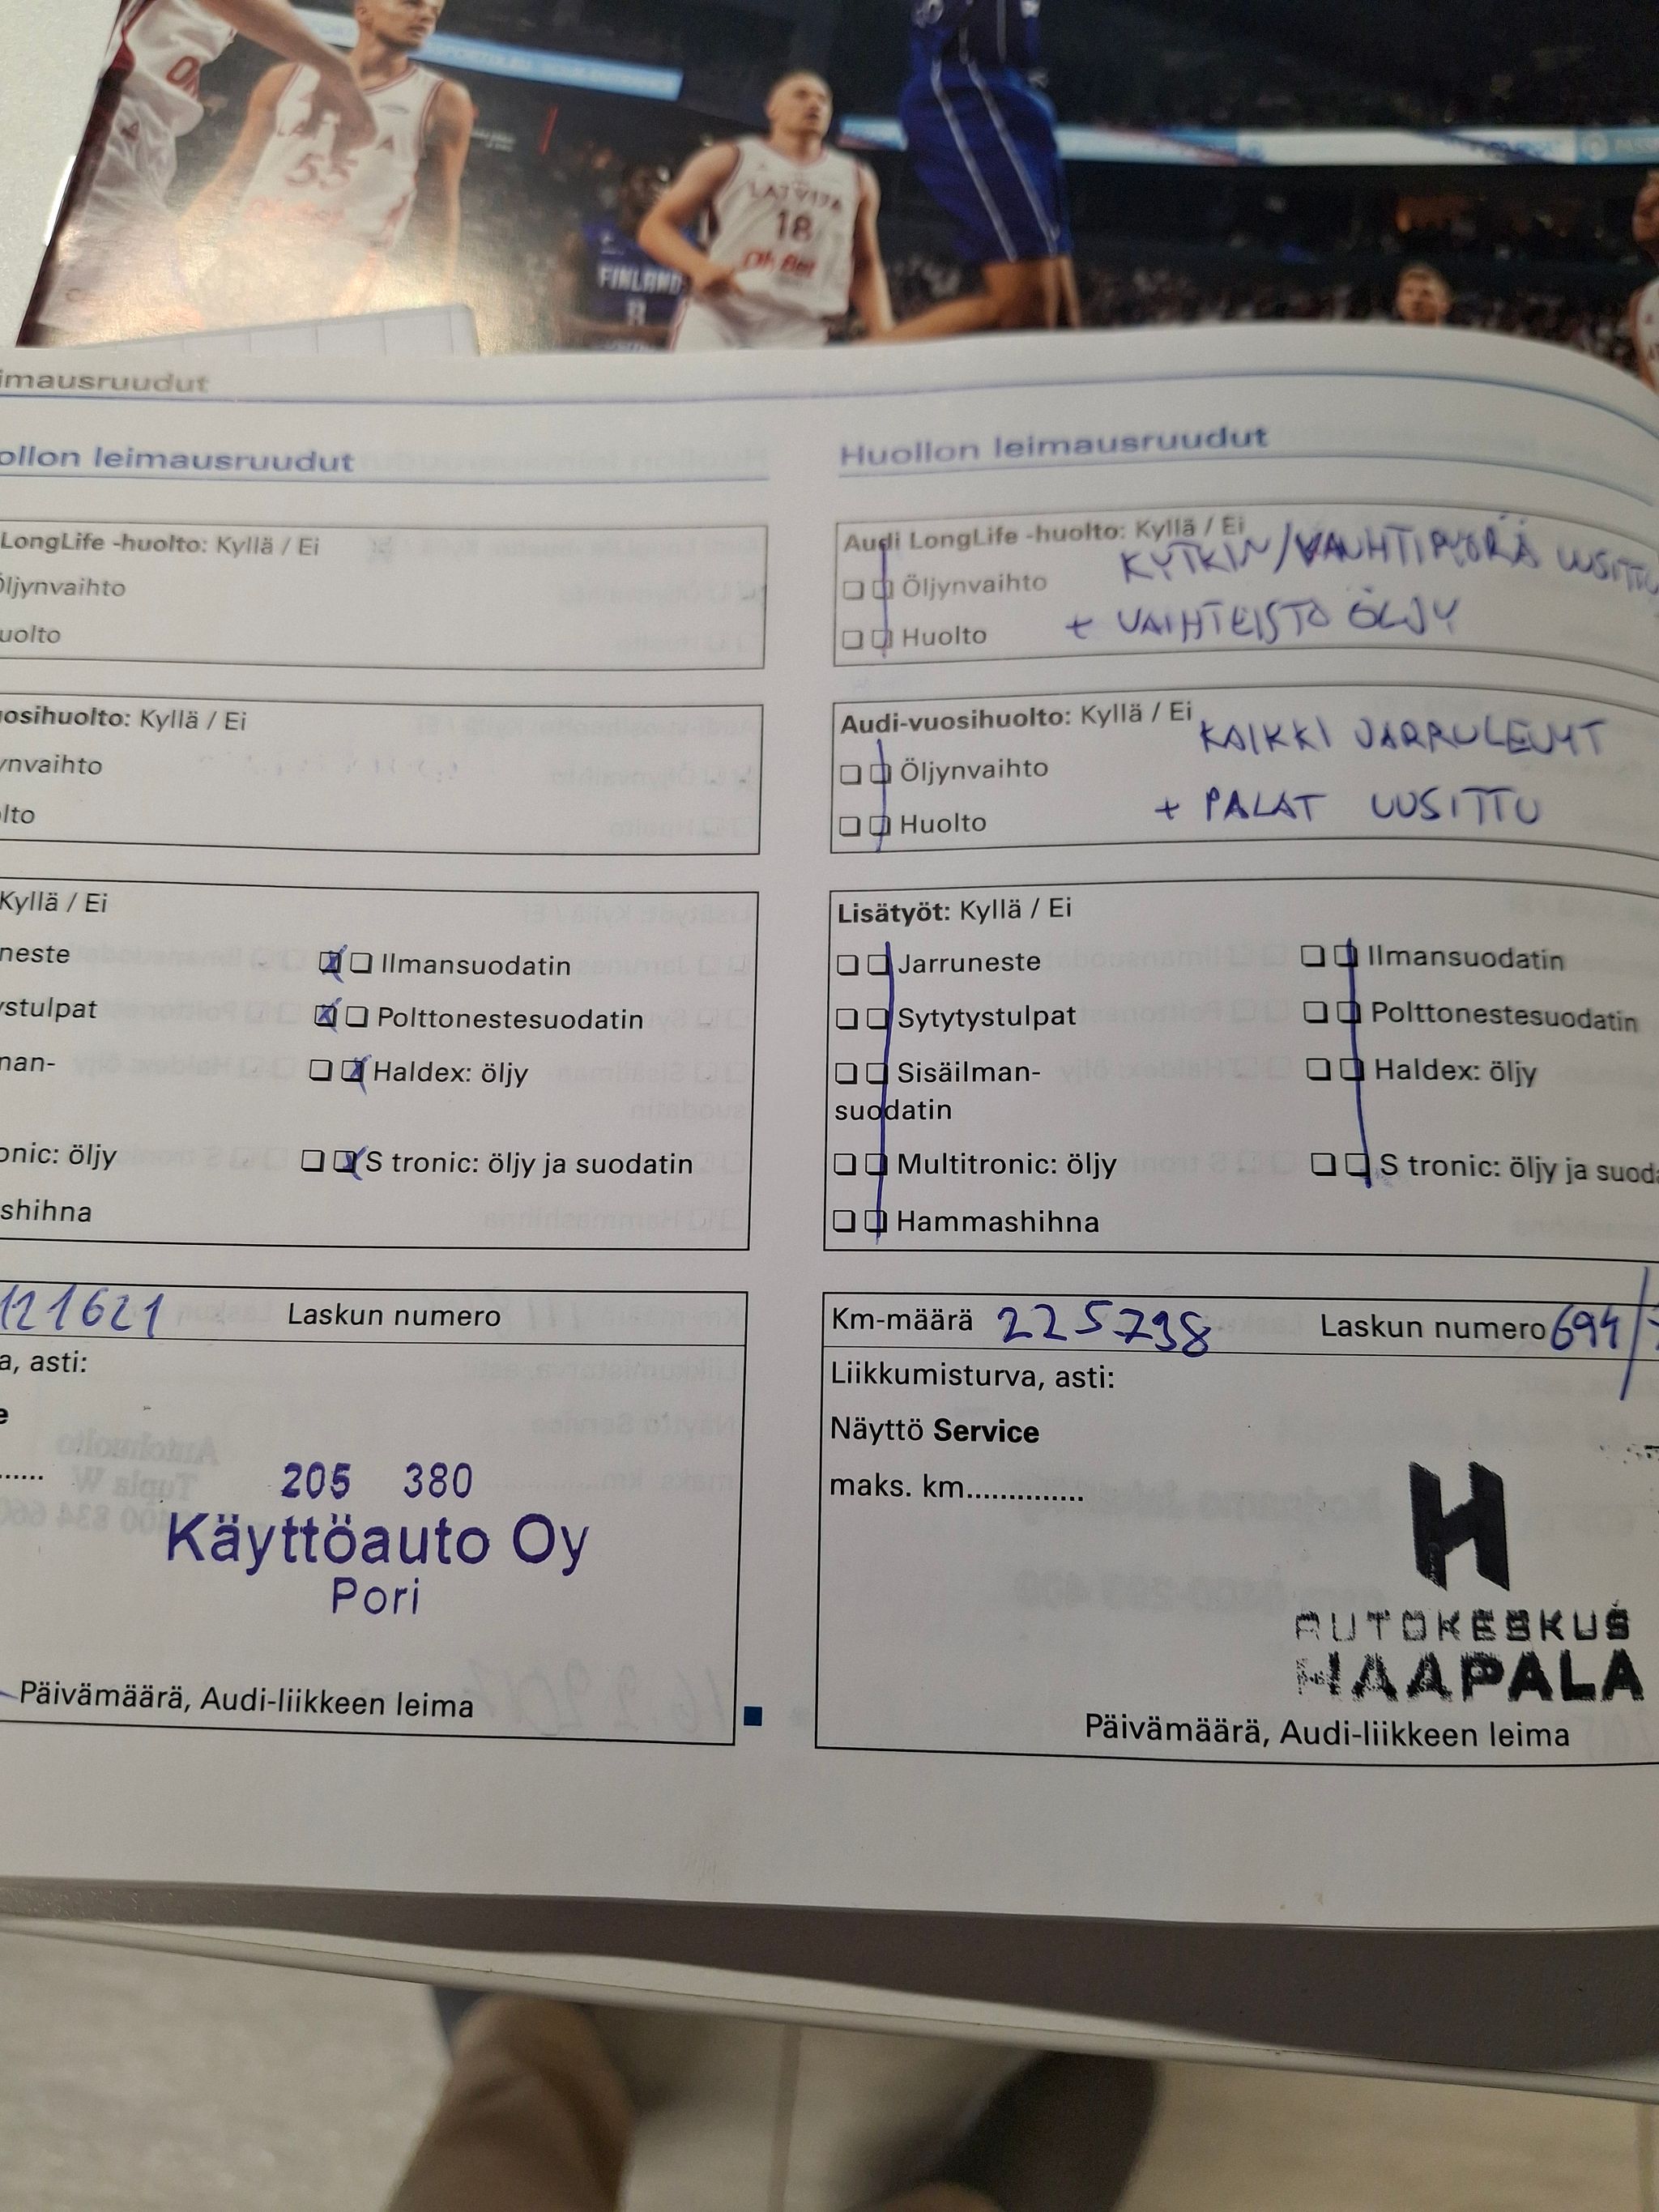 55
LATVIJA
18
FINLAND
imausruudut
ollon leimausruudut
LongLife -huolto: Kyllä / Ei
Öljynvaihto
uolto
uosihuolto: Kyllä / Ei
ynvaihto
lto
Kyllä / Ei
neste
Ilmansuodatin
ystulpat
Polttonestesuodatin
man-
Haldex: öljy
onic: öljy
S tronic: öljy ja suodatin
shihna
121621 Laskun numero
a, asti:
e
......
205 380
Käyttöauto Oy
Pori
Päivämäärä, Audi-liikkeen leima
Huollon leimausruudut
Audi LongLife -huolto: Kyllä / Ei
KYTKIN/VAUHTIPYÖRÄ UUSITTU
Öljynvaihto
+ VAIHTEISTO ÖLJY
Huolto
Audi-vuosihuolto: Kyllä / Ei
KAIKKI JARRULEVYT
Öljynvaihto
+ PALAT UUSITTU
Huolto
Lisätyöt: Kyllä / Ei
Jarruneste
Ilmansuodatin
Sytytystulpat
Polttonestesuodatin
Sisäilman-
suodatin
Haldex: öljy
Multitronic: öljy
S tronic: öljy ja suoda
Hammashihna
Km-määrä 225798 Laskun numero 694/
Liikkumisturva, asti:
Näyttö Service
maks. km..............
H
AUTOKESKUS
HAAPALA
Päivämäärä, Audi-liikkeen leima